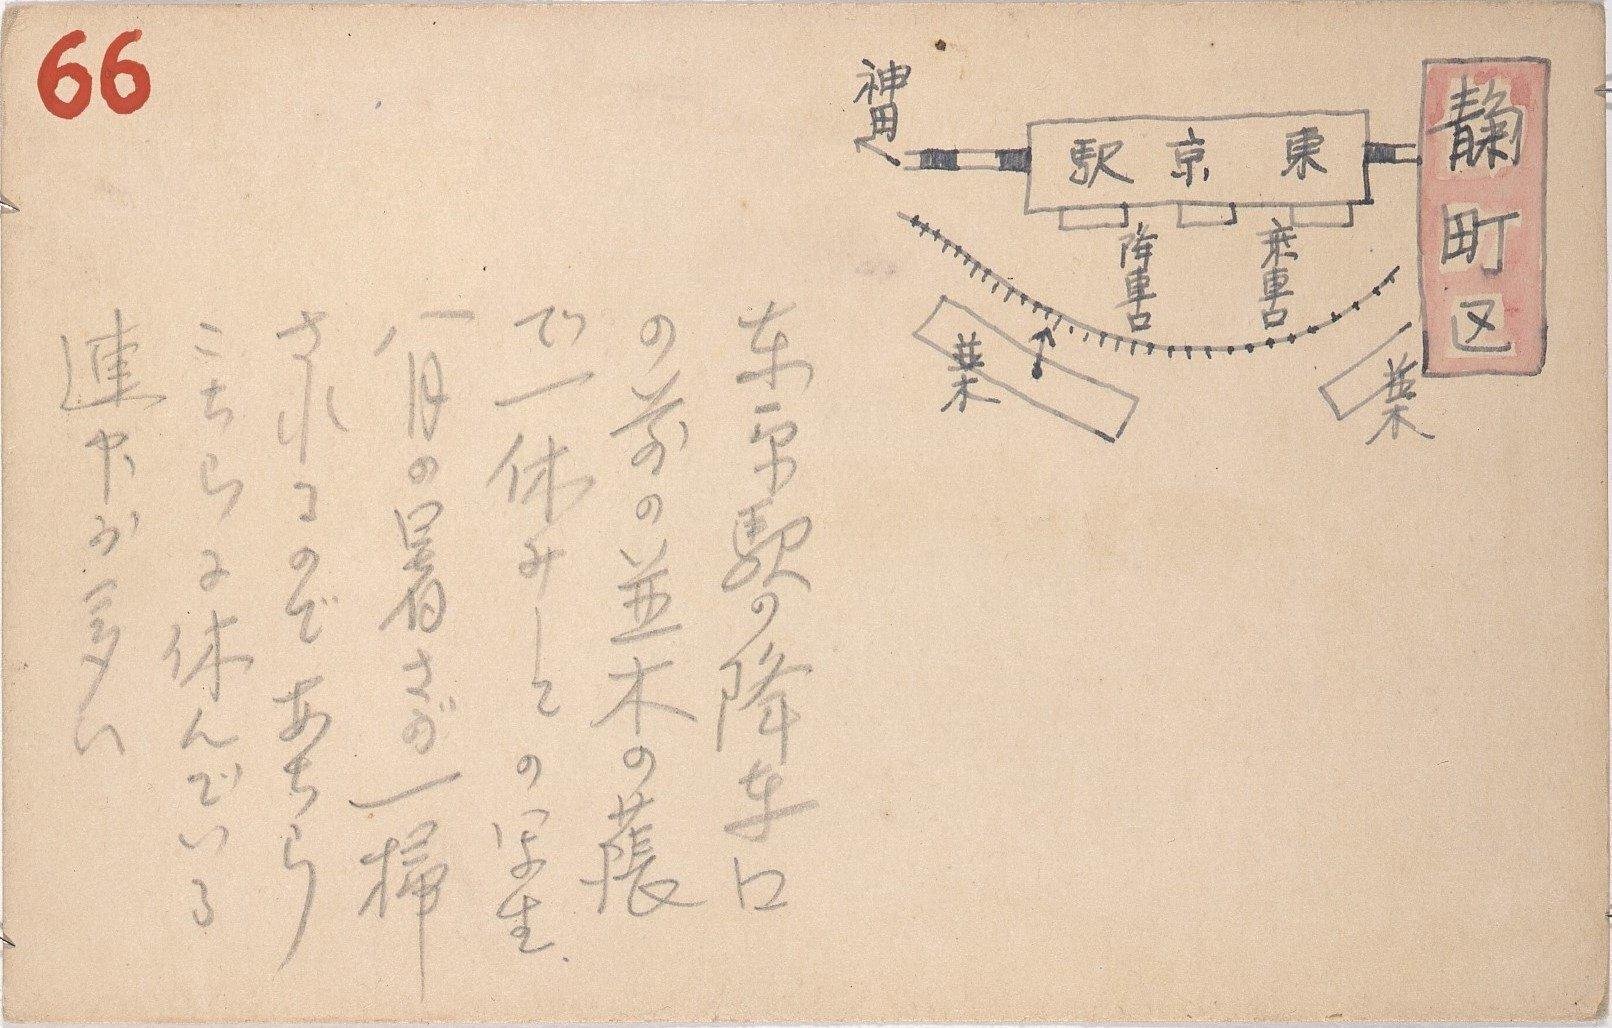 66
麹町区
東京駅
神田へ
乗車口
降車口
並木
並木
東京駅の降車口
の前の並木の蔭
で一休みしての写生.
八月の暑さが一掃
されるのであちら
こちらに休んでいる
連中が多い